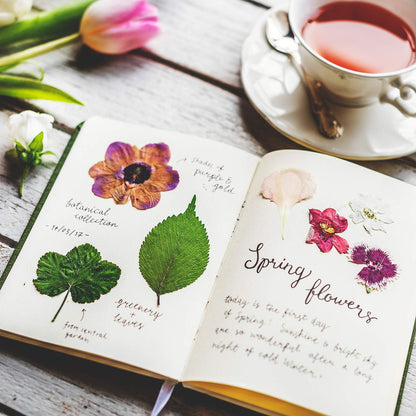 shades of
purple &
gold
botanical
collection
10/03/17
greenery
+
leaves
from central
garden
Spring
flowers
today is the first day
of Spring! Sunshine & bright sky
are so wonderful after a long
night of cold Winter.